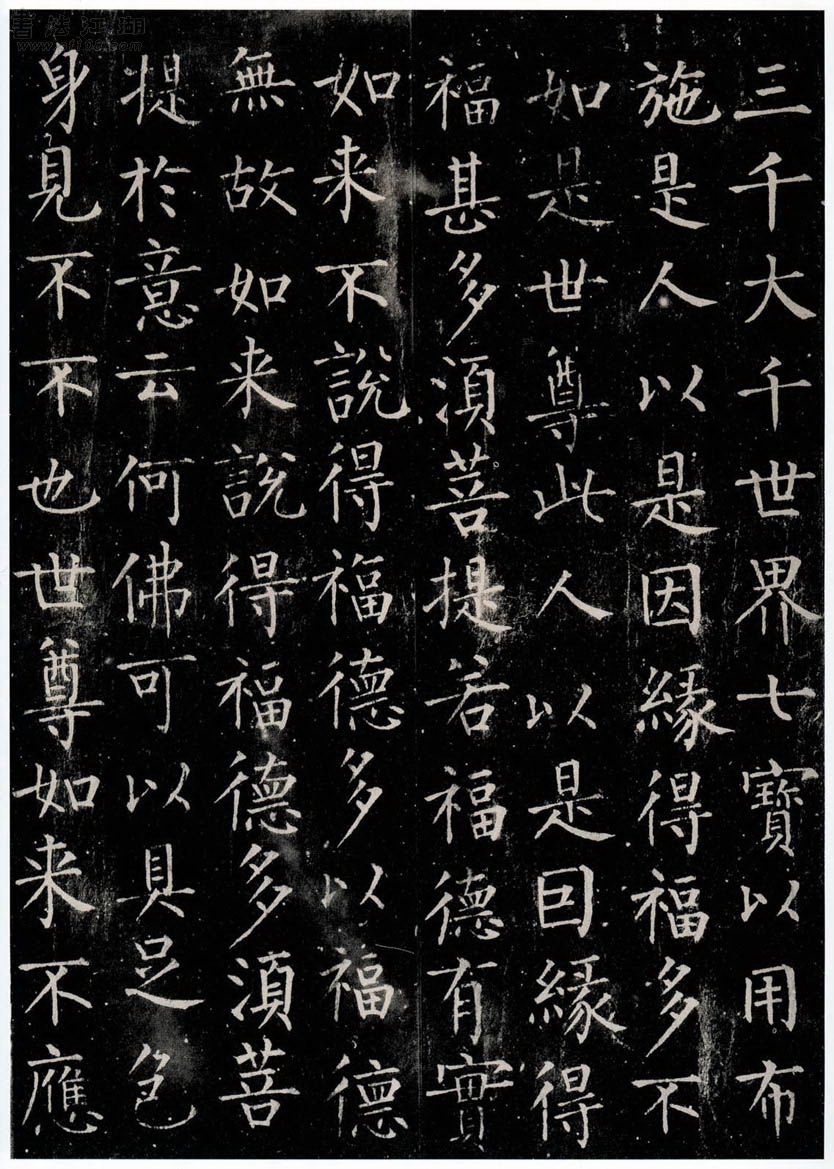 三千大千世界七寶以用布
施是人以是因緣得福多不
如是世尊此人以是囙緣得
福甚多須菩提若福德有實
如来不說得福德多以福德
無故如来說得福德多須菩
提於意云何佛可以具足色
身見不不也世尊如来不應
書法江湖